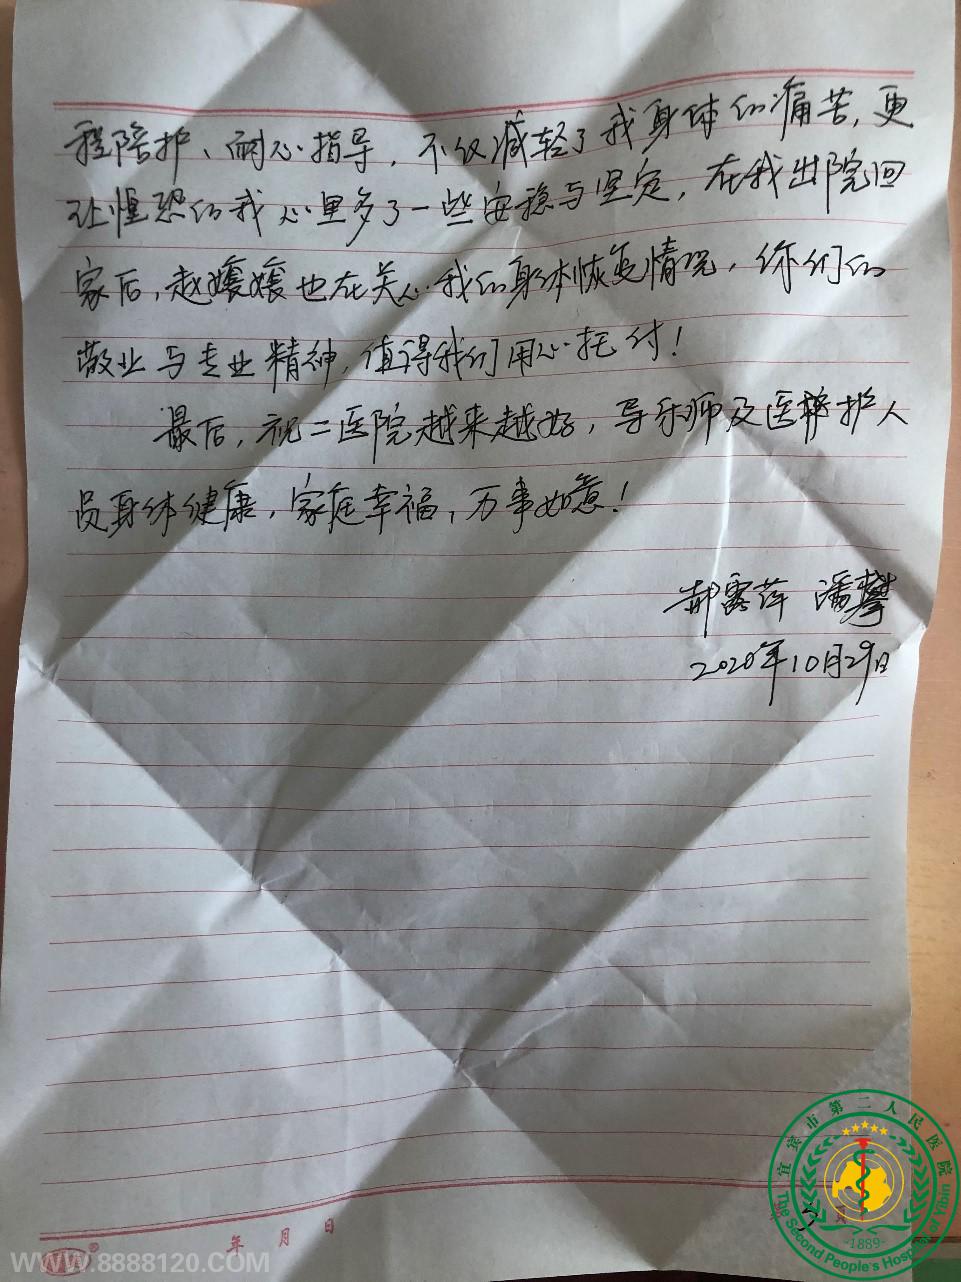 程陪护、耐心指导，不仅减轻了我身体的痛苦，更
让惶恐的我心里多了一些安稳与坚定，在我出院回
家后，赵媛媛也在关心我的身体恢复情况，你们的
敬业与专业精神，值得我们用心托付！
最后，祝二医院越来越好，导乐师及医护人
员身体健康，家庭幸福，万事如意！
郝露萍 潘攀
2020年10月29日
年 月 日
WWW.8888120.COM
宜宾市第二人民医院
The Second People's Hospital of Yibin
-1889-